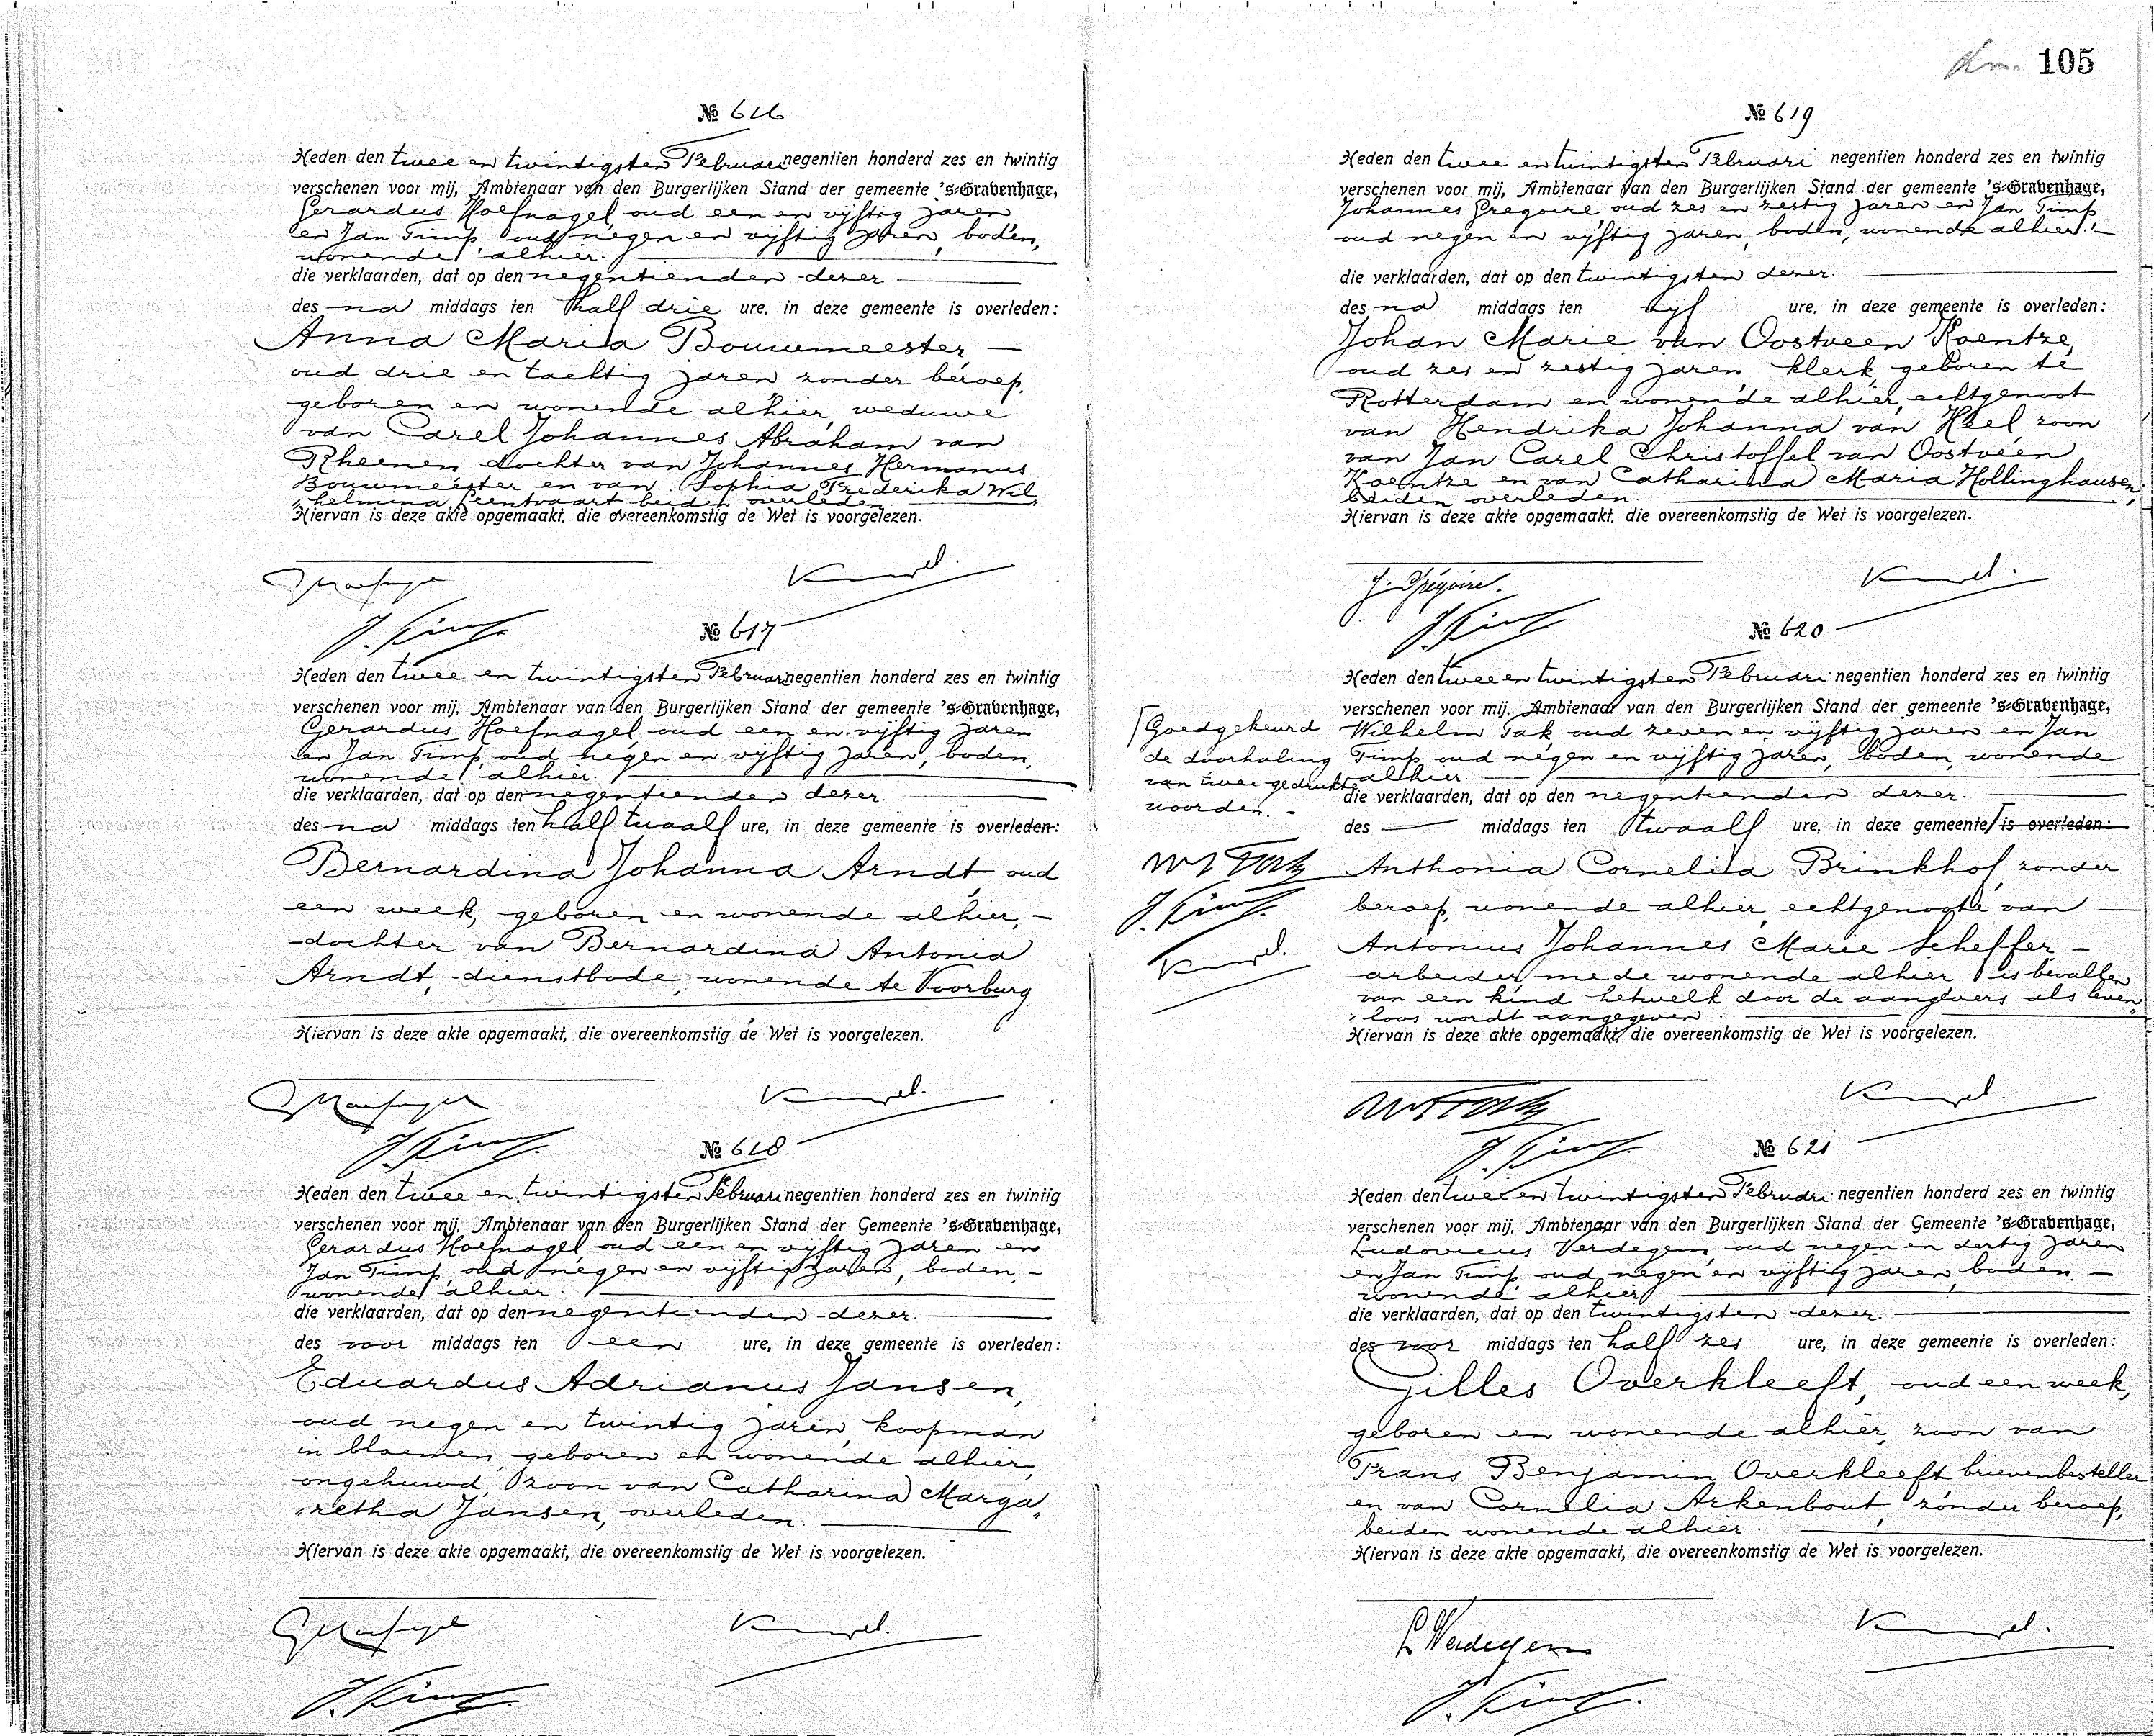 105
№ 616
Heden den twee en twintigsten Februari negentien honderd zes en twintig
verschenen voor mij, Ambtenaar van den Burgerlijken Stand der gemeente 's-Gravenhage,
Gerardus Hoefnagel, oud een en vijftig jaren
en Jan Timp, oud negen en vijftig jaren, boden,
wonende alhier.
die verklaarden, dat op den negentienden dezer
des na middags ten half drie ure, in deze gemeente is overleden:
Anna Maria Bouwmeester,
oud drie en tachtig jaren zonder beroep,
geboren en wonende alhier, weduwe
van Carel Johannes Abraham van
Rheenen dochter van Johannes Hermanus
Bouwmeester en van Sophia Frederika Wil„
„helmina beiden overleden.
Hiervan is deze akte opgemaakt, die overeenkomstig de Wet is voorgelezen.
№ 617
Heden den twee en twintigsten Februari negentien honderd zes en twintig
verschenen voor mij, Ambtenaar van den Burgerlijken Stand der gemeente 's-Gravenhage,
Gerardus Hoefnagel, oud een en vijftig jaren
en Jan Timp, oud negen en vijftig jaren, boden,
wonende alhier.
die verklaarden, dat op den negentienden dezer.
des na middags ten half twaalf ure, in deze gemeente is overleden:
Bernardina Johanna Arndt, oud
een week, geboren en wonende alhier, -
dochter van Bernardina Antonia
Arndt, dienstbode, wonende te Voorburg
Hiervan is deze akte opgemaakt, die overeenkomstig de Wet is voorgelezen.
№ 618
Heden den twee en twintigsten Februari negentien honderd zes en twintig
verschenen voor mij, Ambtenaar van den Burgerlijken Stand der Gemeente 's-Gravenhage,
Gerardus Hoefnagel oud een en vijftig jaren en
Jan Timp, oud negen en vijftig jaren, boden, -
wonende alhier.
die verklaarden, dat op den negentienden dezer.
des voor middags ten een ure, in deze gemeente is overleden:
Eduardus Adrianus Jansen,
oud negen en twintig jaren, koopman
in bloemen, geboren en wonende alhier,
ongehuwd, zoon van Catharina Marga„
„retha Jansen, overleden.
Hiervan is deze akte opgemaakt, die overeenkomstig de Wet is voorgelezen.
№ 619
Heden den twee en twintigsten Februari negentien honderd zes en twintig
verschenen voor mij, Ambtenaar van den Burgerlijken Stand der gemeente 's-Gravenhage,
Johannes Gregoire, oud zes en zestig jaren en Jan Timp,
oud negen en vijftig jaren, boden, wonende alhier. -
die verklaarden, dat op den twintigsten dezer.
des na middags ten vijf ure, in deze gemeente is overleden:
Johan Marie van Oostveen Koentze,
oud zes en zestig jaren, klerk, geboren te
Rotterdam en wonende alhier, echtgenoot
van Hendrika Johanna van Heel zoon
van Jan Carel Christoffel van Oostveen
Koentze en van Catharina Maria Hollinghausen,
beiden overleden.
Hiervan is deze akte opgemaakt, die overeenkomstig de Wet is voorgelezen.
J. Grégoire.
№ 620
Heden den twee en twintigsten Februari negentien honderd zes en twintig
verschenen voor mij, Ambtenaar van den Burgerlijken Stand der gemeente 's-Gravenhage,
Wilhelm Tak, oud zeven en vijftig jaren en Jan
Timp, oud negen en vijftig jaren, boden, wonende
alhier.
die verklaarden, dat op den negentienden dezer.
des middags ten twaalf ure, in deze gemeente is overleden:
Anthonia Cornelia Brinkhof, zonder
beroep, wonende alhier, echtgenoote van
Antonius Johannes Marie Scheffer, -
arbeider, mede wonende alhier is bevallen
van een kind hetwelk door de aangevers als leven„
„loos wordt aangegeven.
Hiervan is deze akte opgemaakt, die overeenkomstig de Wet is voorgelezen.
Goedgekeurd
de doorhaling
van twee gedrukte
woorden. -
№ 621
Heden den twee en twintigsten Februari negentien honderd zes en twintig
verschenen voor mij, Ambtenaar van den Burgerlijken Stand der Gemeente 's-Gravenhage,
Ludovicus Verdegem, oud negen en dertig jaren
en Jan Timp, oud negen en vijftig jaren, boden -
wonende alhier
die verklaarden, dat op den twintigsten dezer.
des voor middags ten half zes ure, in deze gemeente is overleden:
Gilles Overkleeft, oud een week,
geboren en wonende alhier, zoon van
Frans Benjamin Overkleeft brievenbesteller
en van Cornelia Arkenbout, zonder beroep,
beiden wonende alhier.
Hiervan is deze akte opgemaakt, die overeenkomstig de Wet is voorgelezen.
L Verdegem